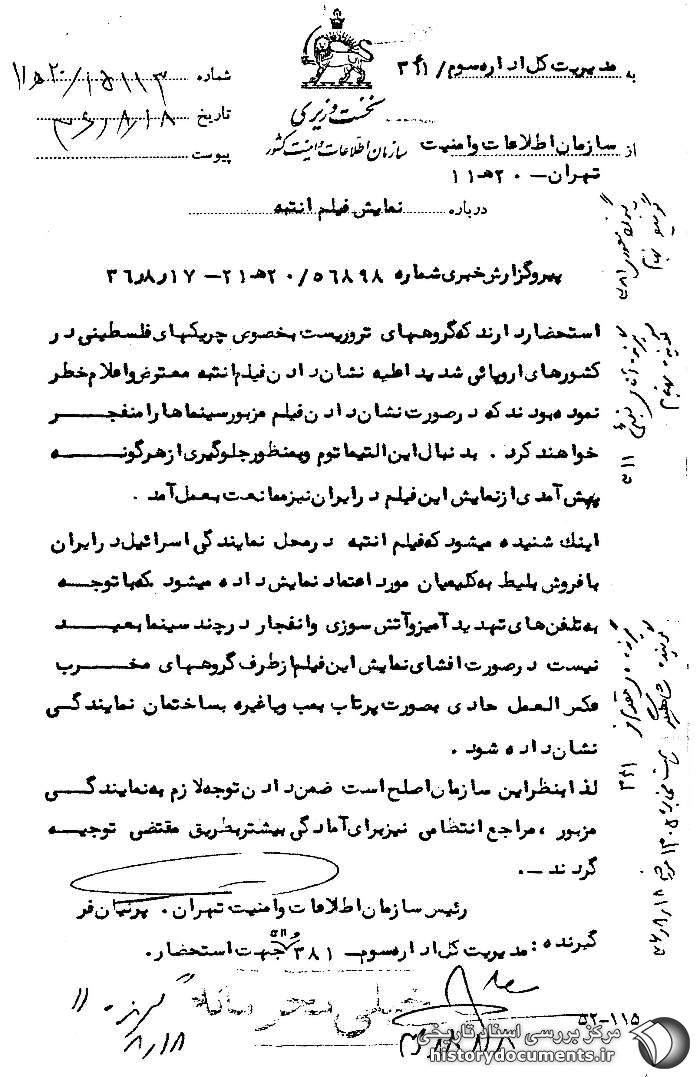 به مدیریت کل اداره سوم / ۳۴۱
شماره ۱۵۱۱۳/۲۰ه۱۱
نخست وزیری
تاریخ ۳۶/۸/۱۸
از سازمان اطلاعات وامنیت
سازمان اطلاعات و امنیت کشور
پیوست
تهران – ۲۰ هـ ۱۱
درباره نمایش فیلم انتبه
پیروگزارش خبری شماره ۵۶۸۹۸/ ۲۰هـ۲۱– ۱۷ر۸ر۳۶
استحضاردارند که گروههای تروریست بخصوص چریکهای فلسطینی در
کشورهای اروپائی شدیداعلیه نشان دادن فیلم انتبه معترض واعلام خطر
نموده بودند که درصورت نشان دادن فیلم مزبورسینماها را منفجر
خواهند کرد . بدنبال این التیماتوم وبمنظورجلوگیری ازهرگونه
پیش آمدی ازنمایش این فیلم درایران نیزممانعت بعمل آمد .
اینك شنیده میشود که فیلم انتبه درمحل نمایندگی اسرائیل در ایران
با فروش بلیط به کلیمیان مورد اعتماد نمایش داده میشود که با توجه
به تلفن های تهدید آمیزوآتش سوزی وانفجار درچند سینما بعید
نیست درصورت افشای نمایش این فیلم ازطرف گروههای مخرب
عکس العمل حادی بصورت پرتاب بمب ویاغیره بساختمان نمایندگی
نشان داده شود .
لذا بنظراین سازمان اصلح است ضمن دادن توجه لازم به نمایندگی
مزبور ، مراجع انتظامی نیزبرای آمادگی بیشتر بطریق مقتضی توجیه
گردند –.
رئیس سازمان اطلاعات وامنیت تهران . پرنیان فر
گیرنده : مدیریت کل اداره سوم– ۳۸۱ جهت استحضار.
خیلی محرمانه
۸/۱۸
۵۲–۱۱۵
مرکز بررسی اسناد تاریخی
historydocuments.ir